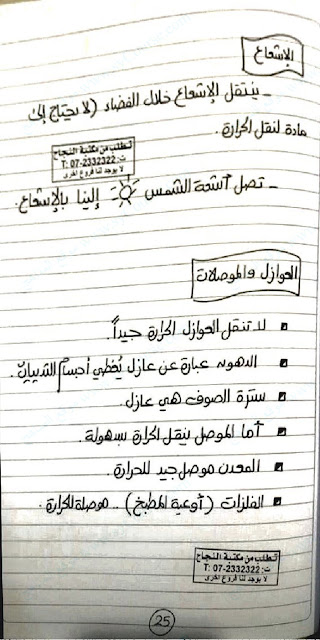 الإشعاع
- ينتقل الإشعاع خلال الفضاء (لا يحتاج إلى
مادة لنقل الحرارة.
تطلب من مكتبة النجاح
ت: 07-2332322 :T
لا يوجد لنا فروع اخرى
- تصل أشعة الشمس إلينا بالإشعاع.
العوازل والموصلات
لا تنقل العوازل الحرارة جيداً.
الدهون عبارة عن عازل يُغطي أجسام الثدييات.
سترة الصوف هي عازل.
أما الموصل ينقل الحرارة بسهولة.
المعدن موصل جيد للحرارة.
الفلزات (أوعية المطبخ) .. موصلة للحرارة.
تطلب من مكتبة النجاح
ت: 07-2332322 :T
لا يوجد لنا فروع اخرى
25